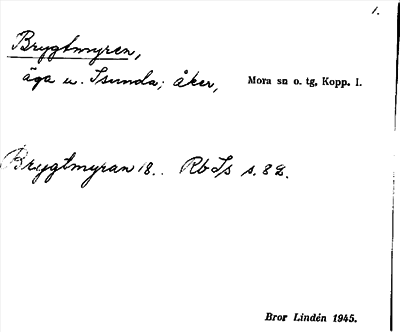 1.
Brygtmyren,
äga u. Isunda; åker, Mora sn o. tg, Kopp. l.
Brygtmyran 18.. Rb Is s. 82.
Bror Lindén 1945.